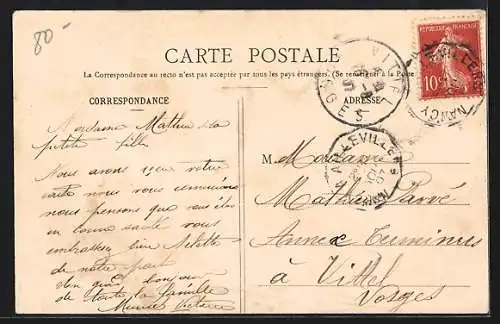 80-
CARTE POSTALE
La Correspondance au recto n'est pas acceptée par tous les pays étrangers. (Se renseigner à la Poste
CORRESPONDANCE
ADRESSE
RÉPUBLIQUE FRANÇAISE
10
NANCY
VITTEL
VOSGES
AILLEVILLERS
NANCY
Madame Mathieu et sa
petite fille
Nous avons reçu votre
carte nous vous remercions
nous pensons que vous êtes
en bonne santé vous
embrassez bien
de notre part
bonjour
de toute la famille
M Madame
Mathieu
Annexe Terminus
à Vittel
Vosges